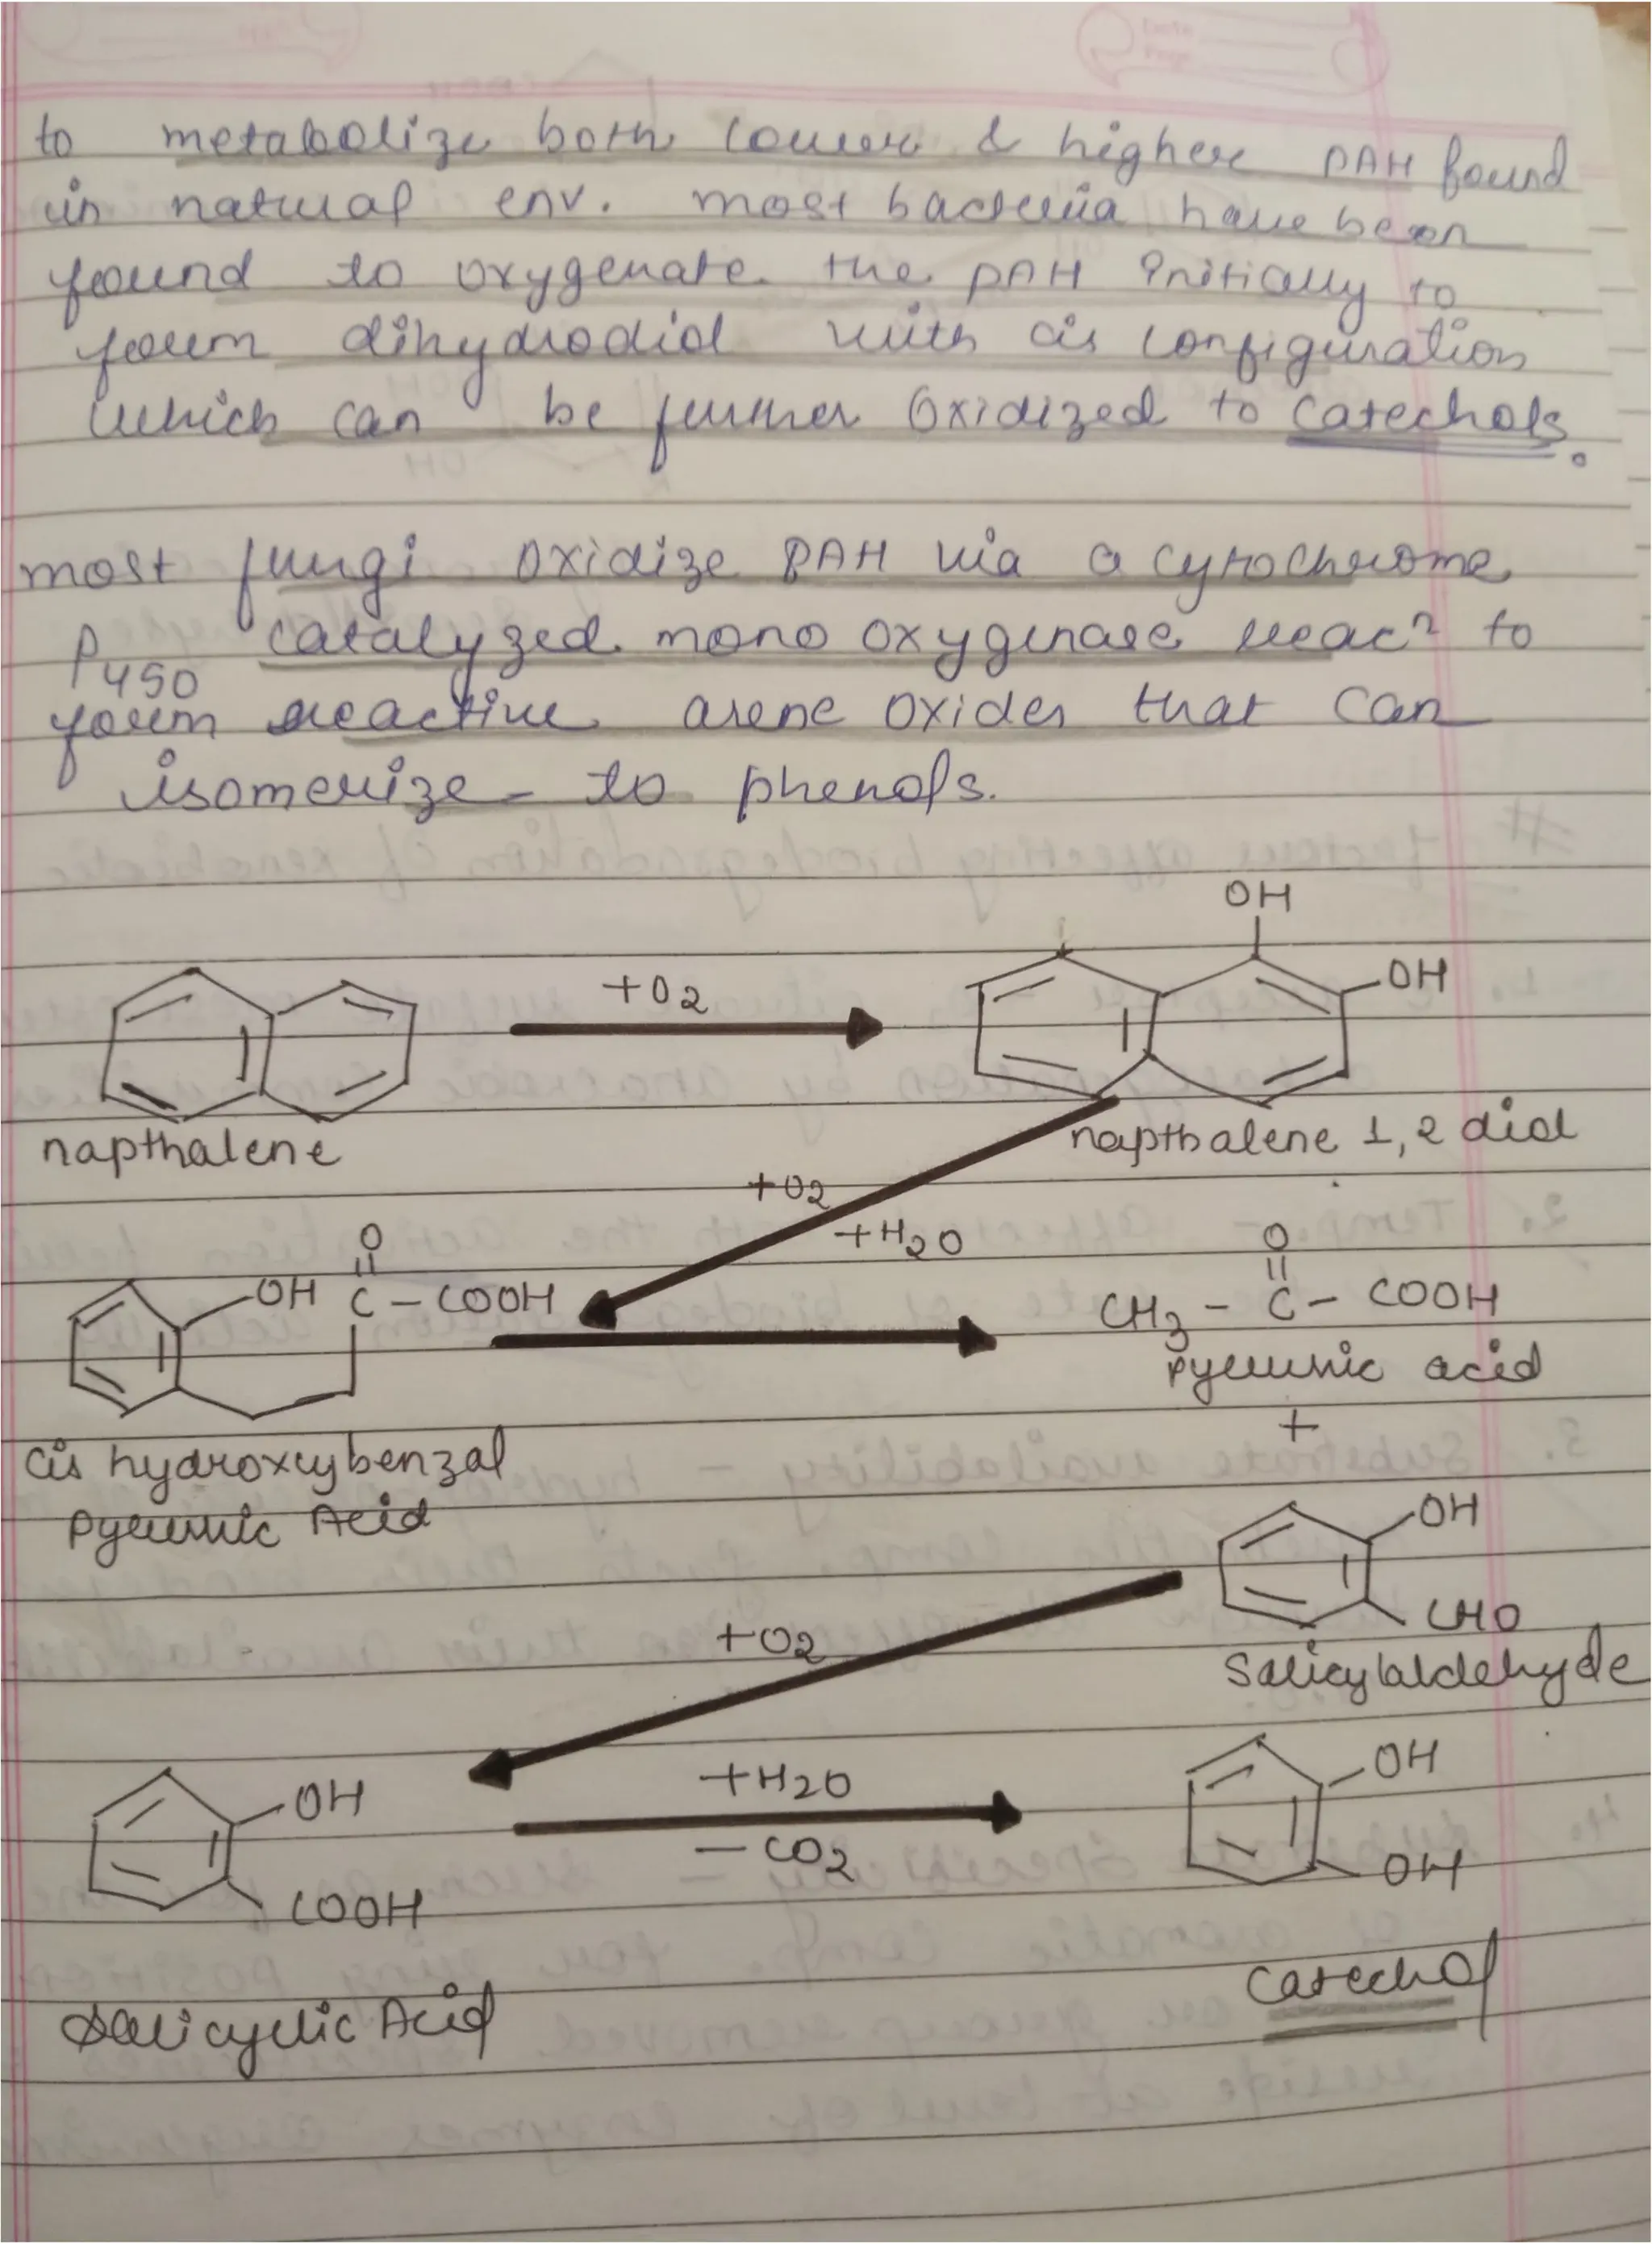 to metabolize both lower & higher PAH found
in natural env. most bacteria have been
found to oxygenate the PAH initially to
form dihydrodiol with cis configuration
which can be further oxidized to catechols.
most fungi oxidize PAH via a cytochrome
P450 catalyzed mono oxygenase reacn to
form reactive arene oxides that can
isomerize - to phenols.
OH
OH
+O2
napthalene
napthalene 1,2 diol
+O2
+H2O
O
OH C - COOH
O
CH3 - C - COOH
pyruvic acid
+
cis hydroxybenzal
pyruvic Acid
OH
CHO
Salicylaldehyde
+O2
OH
COOH
+H2O
- CO2
OH
OH
Salicyclic Acid
catechol